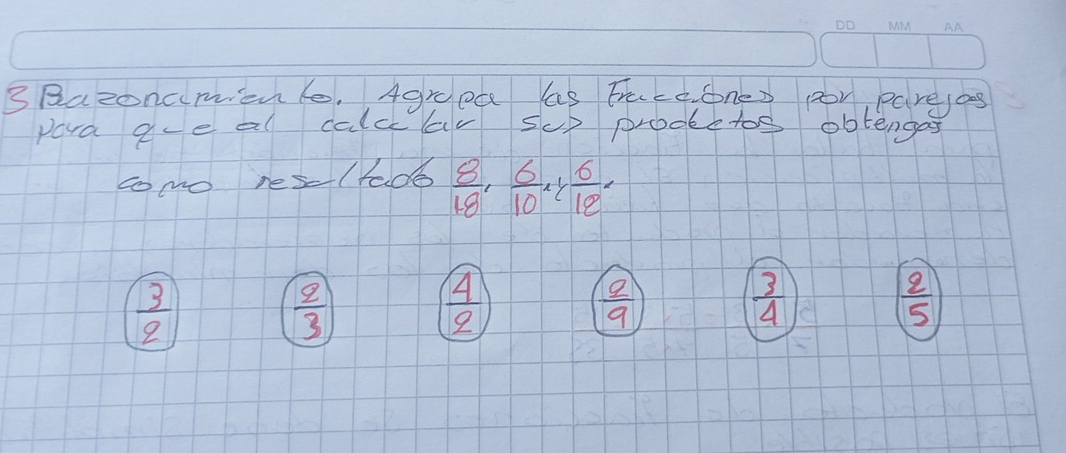 DD MM AA
3 Razonamiento. Agrupa las Fracciones por parejas
para que al calcular sus productos obtengas
como resultado 8/18, 6/10 y 6/12.
3/2 2/3 4/2 2/9 3/4 2/5